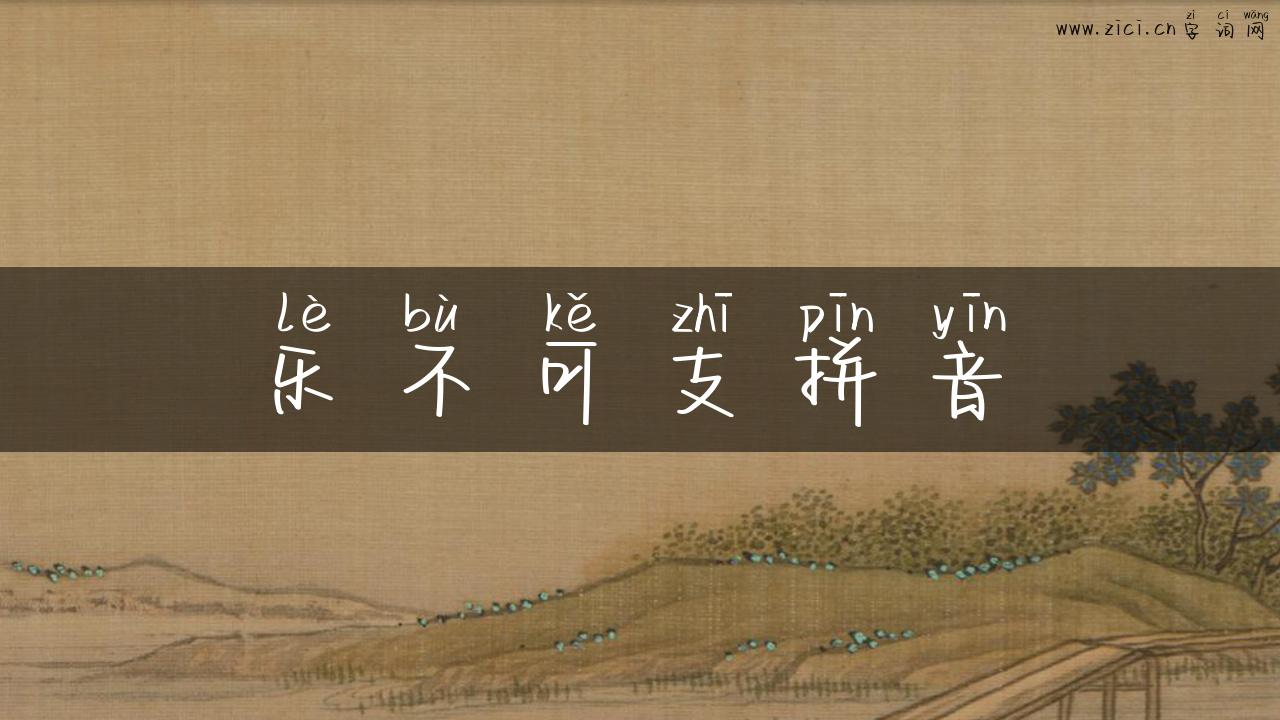 zì cí wǎng
www.zici.cn 字 词 网
lè bù kě zhī pīn yīn
乐 不 可 支 拼 音